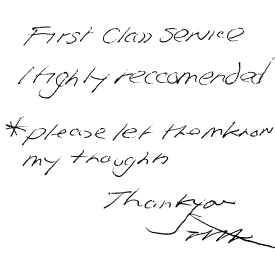 First Class service
Highly reccomended
*please let them know
my thoughts
Thankyou